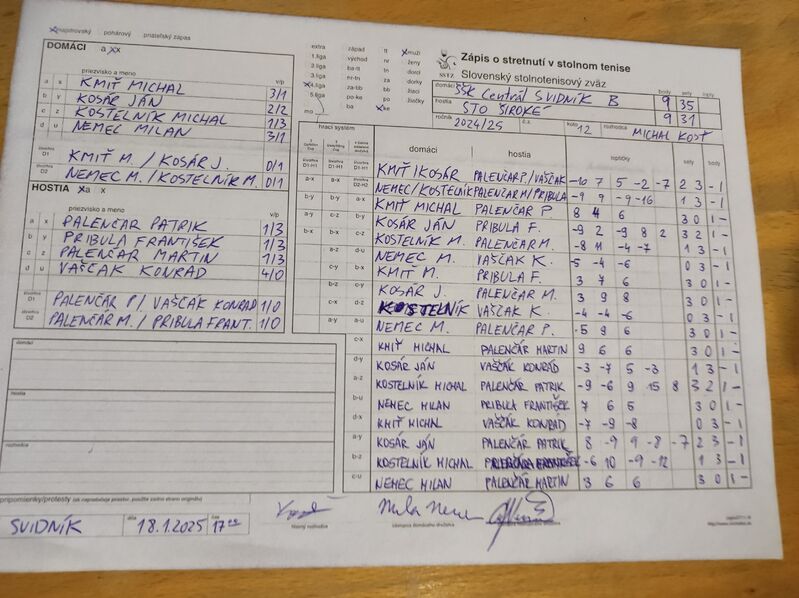 majstrovský pohárový priateľský zápas
DOMÁCI a x
priezvisko a meno v/p
a x KMIŤ MICHAL 3/1
b y KOSÁR JÁN 2/2
c z KOSTELNÍK MICHAL 1/3
d u NEMEC MILAN 3/1
D1 KMIŤ M. / KOSÁR J. 0/1
D2 NEMEC M. / KOSTELNÍK M. 0/1
HOSTIA a x
priezvisko a meno v/p
a x PALENČAR PATRIK 1/3
b y PRIBULA FRANTIŠEK 1/3
c z PALENČAR MARTIN 1/3
d u VAŠČAK KONRAD 4/0
D1 PALENČAR P / VAŠČAK KONRAD 1/0
D2 PALENČAR M. / PRIBULA FRANT. 1/0
domáci
hostia
rozhodca
pripomienky/protesty
SVIDNÍK dňa 18.1.2025 čas 17 00
extra západ muži
1.liga východ nr ženy
2.liga ba-tt tn dorci
3.liga nr-tn za dorky
4.liga za-bb po žiaci
5.liga po-ke bb žiačky
mo ba ke
Zápis o stretnutí v stolnom tenise
SSTZ Slovenský stolnotenisový zväz
body sety
domáci ŠŠK Centrál SVIDNÍK B 9 35
hostia STO ŠIROKÉ 9 31
ročník 2024/25 č.z. kolo 12 rozhodca MICHAL KOSŤ
hrací systém domáci hostia loptičky sety body
KMIŤ/KOSÁR PALENČAR P./VAŠČAK -10 7 5 -2 -7 2 3 - 1
NEMEC/KOSTELNÍK PALENČAR M/PRIBULA -9 9 -9 -16 1 3 - 1
KMIŤ MICHAL PALENČAR P 8 4 6 3 0 1 -
KOSÁR JÁN PRIBULA F. -9 2 -9 8 2 3 2 1 -
KOSTELNÍK M. PALENČAR M. -8 11 -4 -7 1 3 - 1
NEMEC M. VAŠČAK K. -5 -4 -6 0 3 - 1
KMIŤ M. PRIBULA F. 3 7 6 3 0 1 -
KOSÁR J. PALENČAR M. 3 9 8 3 0 1 -
KOSTELNÍK VAŠČAK K. -4 -4 -6 0 3 - 1
NEMEC M. PALENČAR P. 5 9 6 3 0 1 -
c-x KMIŤ MICHAL PALENČÁR MARTIN 9 6 6 3 0 1 -
d-y KOSÁR JÁN VAŠČÁK KONRÁD -3 -7 5 -3 1 3 - 1
a-z KOSTELNÍK MICHAL PALENČÁR PATRIK -9 -6 9 15 8 3 2 1 -
b-u NEMEC MILAN PRIBULA FRANTIŠEK 7 6 5 3 0 1 -
d-x KMIŤ MICHAL VAŠČÁK KONRÁD -7 -9 -8 0 3 - 1
a-y KOSÁR JÁN PALENČÁR PATRIK 8 -9 9 -8 -7 2 3 - 1
b-z KOSTELNÍK MICHAL -6 10 -9 -12 1 3 - 1
c-u NEMEC MILAN PALENČÁR MARTIN 3 6 6 3 0 1 -
hlavný rozhodca zástupca domáceho družstva